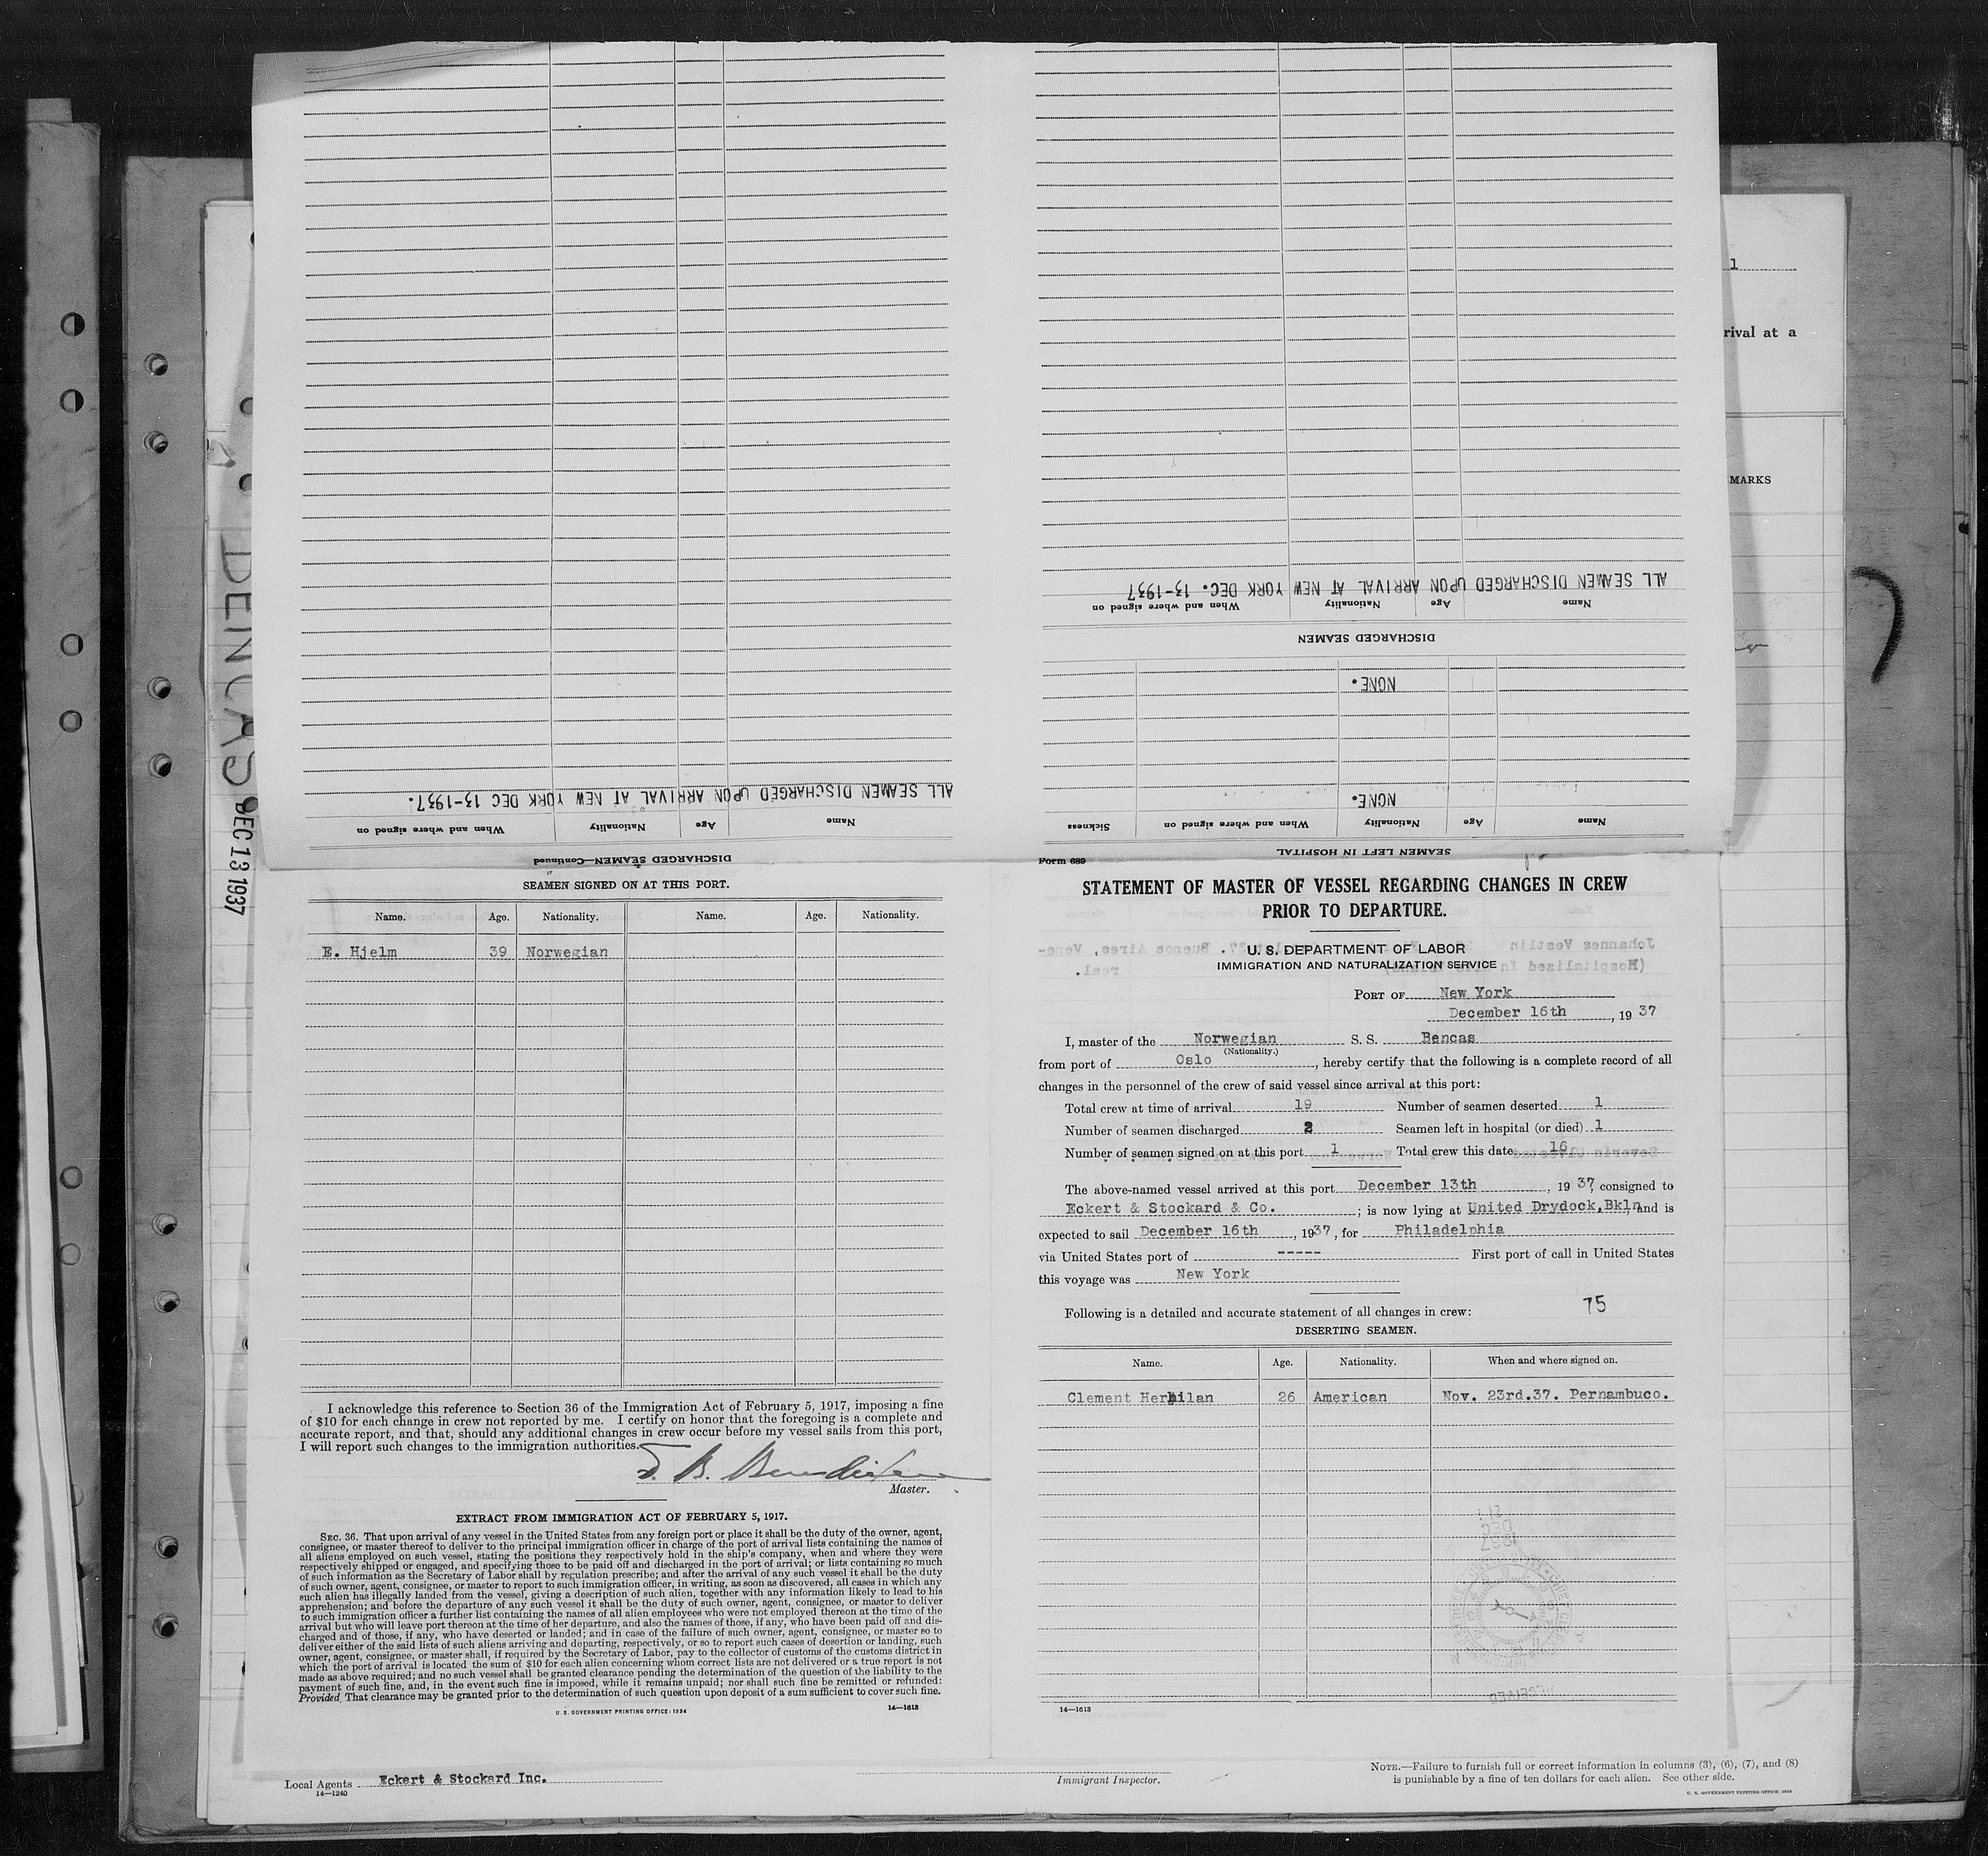 1
rival at a
MARKS
DENCAS
DEC 13 1937
ALL SEAMEN DISCHARGED UPON ARRIVAL AT NEW YORK DEC 13-1937.
Name Age Nationality When and where signed on
DISCHARGED SEAMEN—Continued
SEAMEN LEFT IN HOSPITAL
Name Age Nationality When and where signed on Sickness
NONE.
NONE.
DISCHARGED SEAMEN
Name Age Nationality When and where signed on
ALL SEAMEN DISCHARGED UPON ARRIVAL AT NEW YORK DEC. 13-1937
SEAMEN SIGNED ON AT THIS PORT.
Name. Age. Nationality. Name. Age. Nationality.
E. Hjelm 39 Norwegian
I acknowledge this reference to Section 36 of the Immigration Act of February 5, 1917, imposing a fine
of $10 for each change in crew not reported by me. I certify on honor that the foregoing is a complete and
accurate report, and that, should any additional changes in crew occur before my vessel sails from this port,
I will report such changes to the immigration authorities.
Master.
EXTRACT FROM IMMIGRATION ACT OF FEBRUARY 5, 1917.
SEC. 36. That upon arrival of any vessel in the United States from any foreign port or place it shall be the duty of the owner, agent,
consignee, or master thereof to deliver to the principal immigration officer in charge of the port of arrival lists containing the names of
all aliens employed on such vessel, stating the positions they respectively hold in the ship's company, when and where they were
respectively shipped or engaged, and specifying those to be paid off and discharged in the port of arrival; or lists containing so much
of such information as the Secretary of Labor shall by regulation prescribe; and after the arrival of any such vessel it shall be the duty
of such owner, agent, consignee, or master to report to such immigration officer, in writing, as soon as discovered, all cases in which any
such alien has illegally landed from the vessel, giving a description of such alien, together with any information likely to lead to his
apprehension; and before the departure of any such vessel it shall be the duty of such owner, agent, consignee, or master to deliver
to such immigration officer a further list containing the names of all alien employees who were not employed thereon at the time of the
arrival but who will leave port thereon at the time of her departure, and also the names of those, if any, who have been paid off and dis-
charged and of those, if any, who have deserted or landed; and in case of the failure of such owner, agent, consignee, or master so to
deliver either of the said lists of such aliens arriving and departing, respectively, or so to report such cases of desertion or landing, such
owner, agent, consignee, or master shall, if required by the Secretary of Labor, pay to the collector of customs of the customs district in
which the port of arrival is located the sum of $10 for each alien concerning whom correct lists are not delivered or a true report is not
made as above required; and no such vessel shall be granted clearance pending the determination of the question of the liability to the
payment of such fine, and, in the event such fine is imposed, while it remains unpaid; nor shall such fine be remitted or refunded:
Provided, That clearance may be granted prior to the determination of such question upon deposit of a sum sufficient to cover such fine.
U. S. GOVERNMENT PRINTING OFFICE: 1934 14—1613
Form 689
STATEMENT OF MASTER OF VESSEL REGARDING CHANGES IN CREW
PRIOR TO DEPARTURE.
U. S. DEPARTMENT OF LABOR
IMMIGRATION AND NATURALIZATION SERVICE
PORT OF New York
December 16th, 1937
I, master of the Norwegian S. S. Bencas
(Nationality.)
from port of Oslo, hereby certify that the following is a complete record of all
changes in the personnel of the crew of said vessel since arrival at this port:
Total crew at time of arrival 19 Number of seamen deserted 1
Number of seamen discharged 2 Seamen left in hospital (or died) 1
Number of seamen signed on at this port 1 Total crew this date 16
The above-named vessel arrived at this port December 13th, 1937, consigned to
Eckert & Stockard & Co.; is now lying at United Drydock, Bkln, and is
expected to sail December 16th, 1937, for Philadelphia
via United States port of ----- First port of call in United States
this voyage was New York
75
Following is a detailed and accurate statement of all changes in crew:
DESERTING SEAMEN.
Name. Age. Nationality. When and where signed on.
Clement Herbilan 26 American Nov. 23rd.37. Pernambuco.
14—1613
Local Agents Eckert & Stockard Inc.
14—1240
Immigrant Inspector.
NOTE.—Failure to furnish full or correct information in columns (3), (6), (7), and (8)
is punishable by a fine of ten dollars for each alien. See other side.
U. S. GOVERNMENT PRINTING OFFICE: 1929